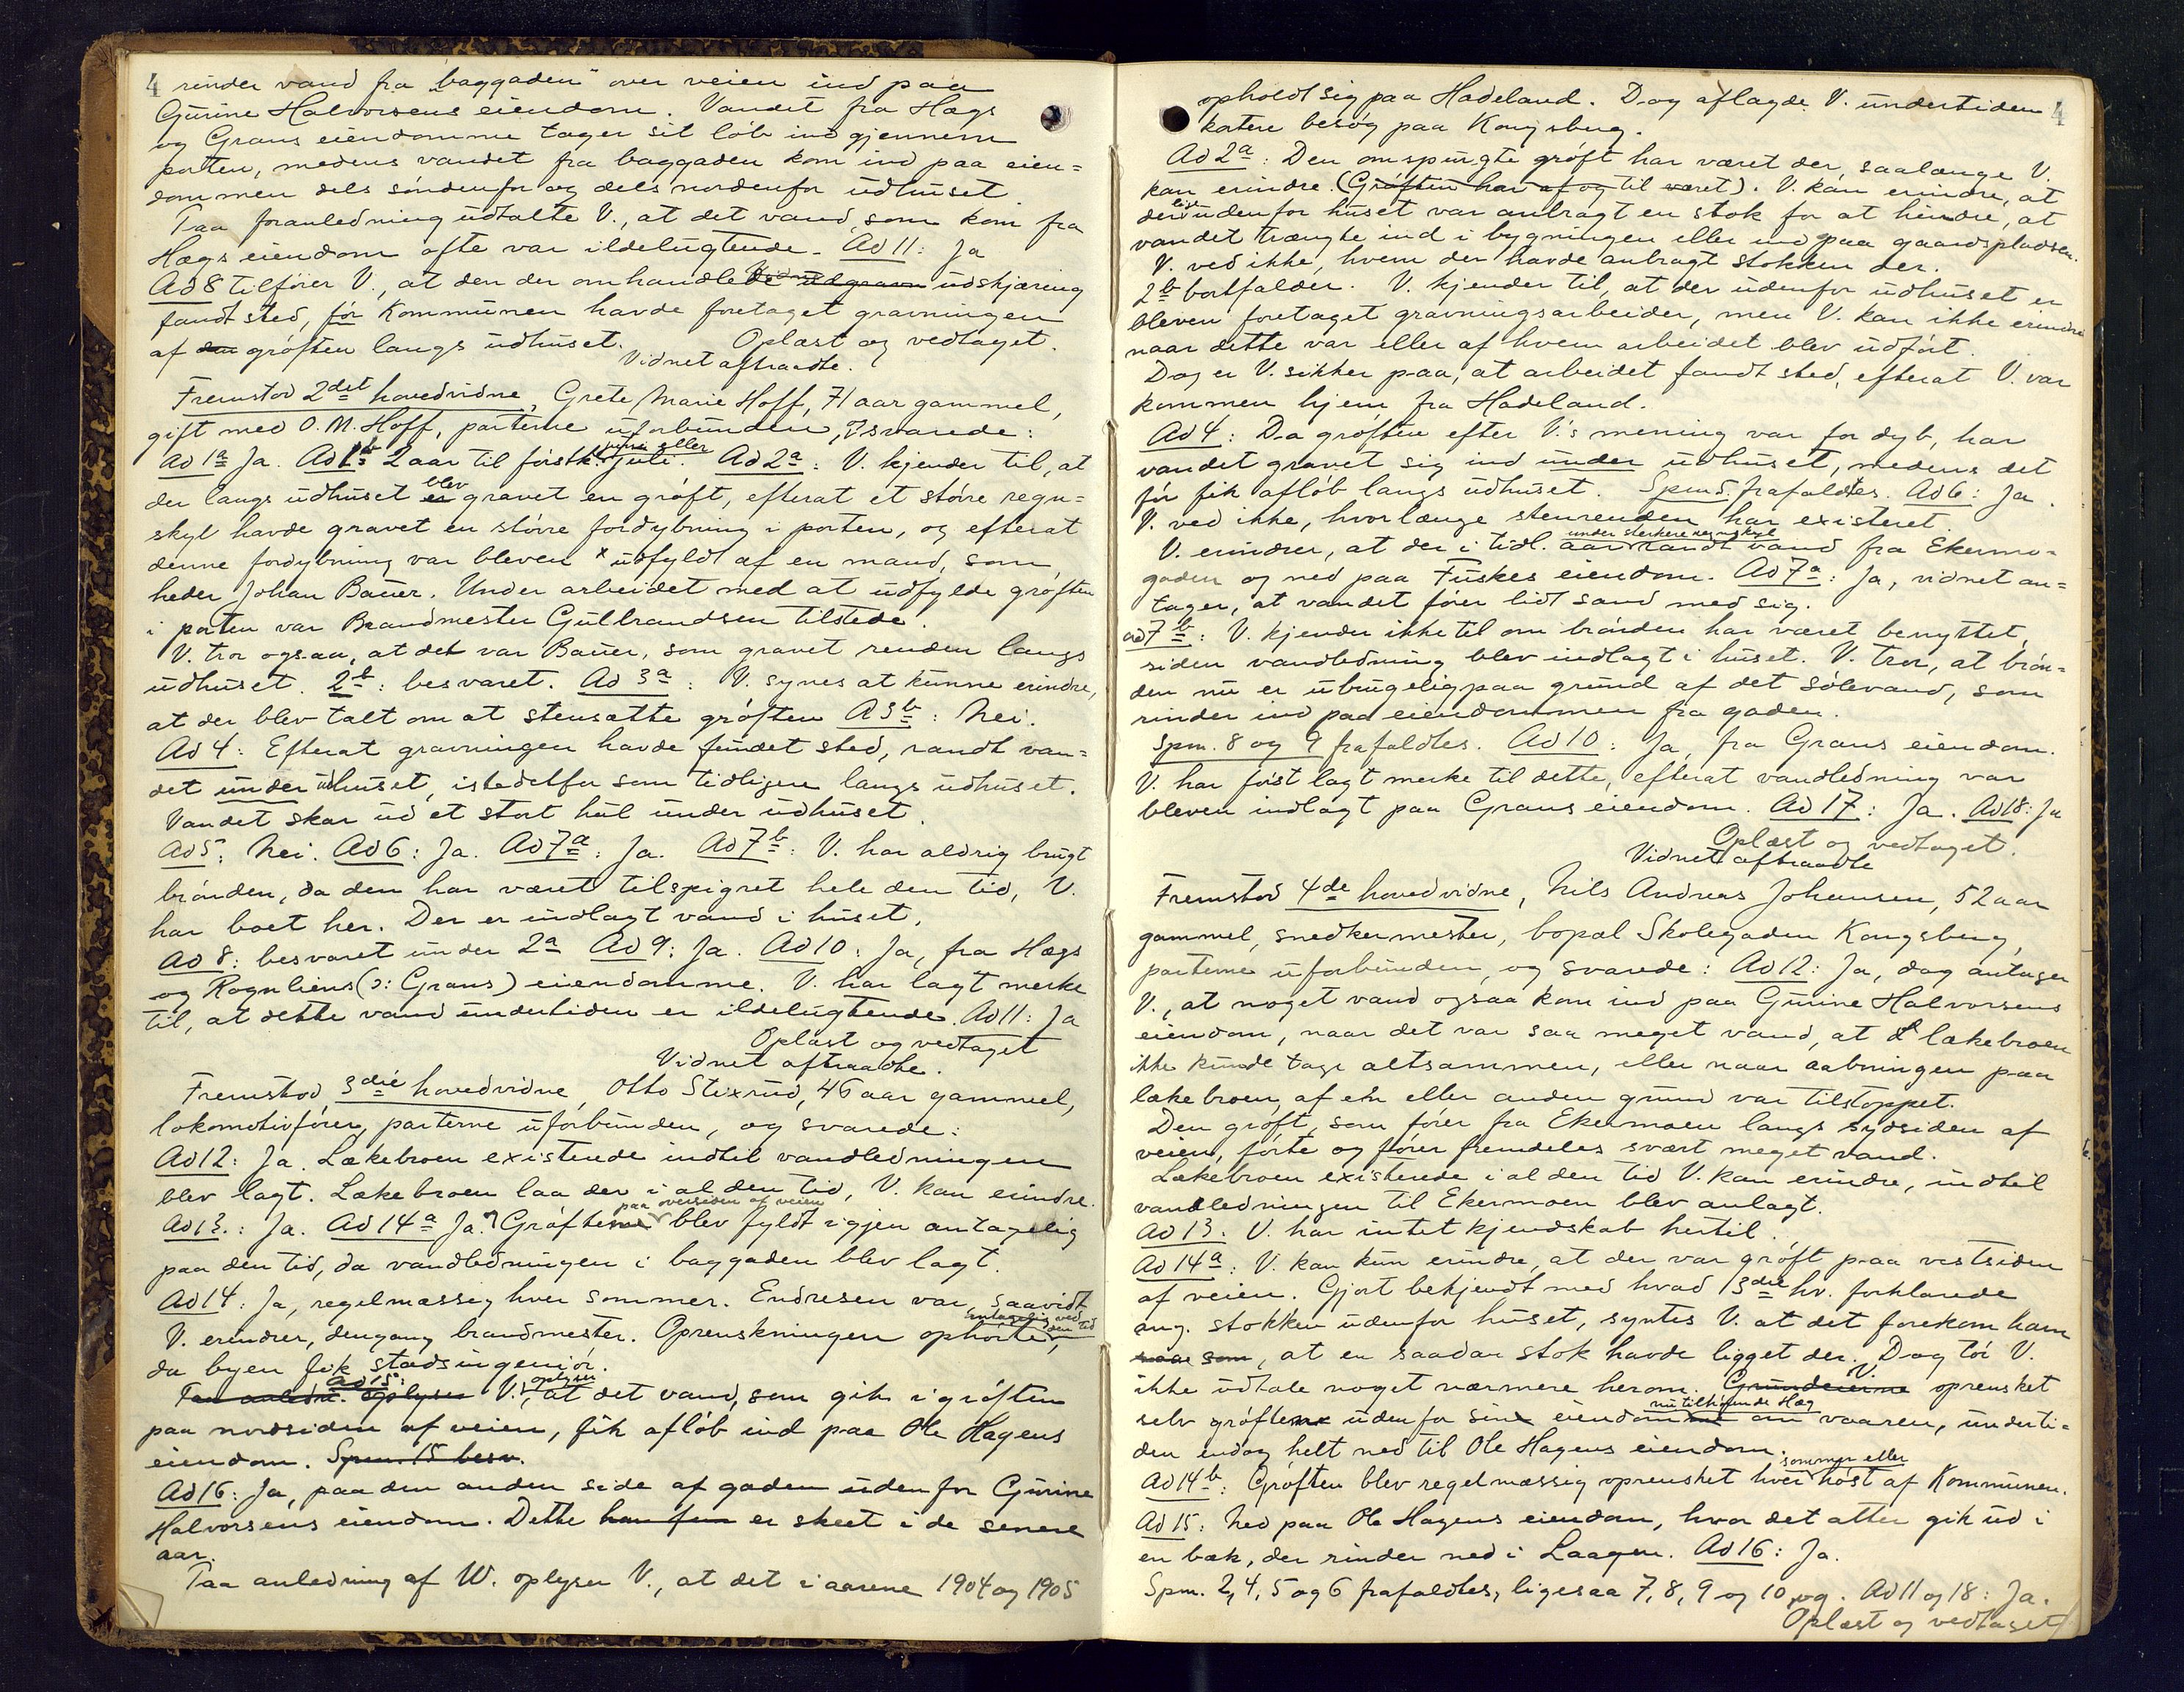 4 rinder vand fra "baggaden" over veien ind paa
Gurine Halvorsens eiendom. Vandet fra Hægs
og Grans eiendomme tager sit løb ind gjennem
porten, medens vandet fra baggaden kom ind paa eien=
dommen dels søndenfor og dels nordenfor udhuset.
Paa foranledning udtalte V., at det vand, som kom fra
Hægs eiendom ofte var ildelugtende. Ad 11: Ja
Ad 8 tilføier V., at den der omhandlede udgravn udskjæring
fandt sted, før Kommunen havde foretaget gravningen
af den grøften langs udhuset. Oplæst og vedtaget.
Vidnet aftraadte.
Fremstod 2det hovedvidne, Grete Marie Hoff, 71 aar gammel,
gift med O. M. Hoff, parterne uforbunden, svarede:
Ad 1a Ja. Ad 1b 2 aar til førstk. juni eller juli. Ad 2a: V. kjender til, at
der langs udhuset er blev gravet en grøft, efterat et større regn=
skyl havde gravet en større fordybning i porten, og efterat
denne fordybning var bleven x udfyldt af en mand, som
heder Johan Bauer. Under arbeidet med at udfylde grøften
i porten var Brandmester Gulbrandsen tilstede.
V. tror ogsaa, at det var Bauer, som gravet renden langs
udhuset. 2b: besvaret. Ad 3a: V. synes at kunne erindre,
at der blev talt om at stensætte grøften A 3b: Nei.
Ad 4: Efterat gravningen havde fundet sted, randt van=
det under udhuset, istedetfor som tidligere langs udhuset.
Vandet skar ud et stort hul under udhuset.
Ad 5: Nei. Ad 6: Ja. Ad 7a: Ja. Ad 7b: V. har aldrig brugt
brønden, da den har været tilspigret hele den tid, V.
har boet her. Der er indlagt vand i huset.
Ad 8: besvaret under 2a Ad 9: Ja. Ad 10: Ja, fra Hægs
og Rognliens (ɔ: Grans) eiendomme. V. har lagt merke
til, at dette vand undertiden er ildelugtende. Ad 11: Ja
Oplæst og vedtaget
Vidnet aftraadte.
Fremstod 3die hovedvidne, Otto Stixrud, 46 aar gammel,
lokomotivfører, parterne uforbunden, og svarede:
Ad 12: Ja. Lækebroen existerede indtil vandledningen
blev lagt. Lækebroen laa der i al den tid, V. kan erindre.
Ad 13.: Ja. Ad 14a Ja. Grøfterne paa oversiden af veien blev fyldt igjen antagelig
paa den tid, da vandledningen i baggaden blev lagt.
Ad 14: Ja, regelmæssig hver sommer. Endresen var, saavidt
V. erindrer, dengang brandmester. Oprenskningen ophørte, antagelig ved den tid
da byen fik stadsingeniør.
Paa anledn. oplyser Ad 15: V. oplyser, at det vand, som gik i grøften
paa nordsiden af veien, fik afløb ind paa Ole Hagens
eiendom. Spm. 15 besv.
Ad 16: Ja, paa den anden side af gaden udenfor Gurine
Halvorsens eiendom. Dette er skeet i de senere
aar.
Paa anledning af W. oplyser V., at det i aarene 1904 og 1905
opholdt sig paa Hadeland. Dog aflagde V. undertiden 4
kortere besøg paa Kongsberg.
Ad 2a: Den omspurgte grøft har været der, saalænge V.
kan erindre. (Grøften har af og til været). V. kan erindre, at
der udenfor huset var anbragt en stok for at hindre, at
vandet trængte ind i bygningen eller ind paa gaardspladsen.
V. ved ikke, hvem der havde anbragt stokken der.
2b bortfalder. V. kjender til, at der udenfor udhuset er
bleven foretaget gravningsarbeider, men V. kan ikke erindre
naar dette var eller af hvem arbeidet blev udført.
Dog er V. sikker paa, at arbeidet fandt sted, efterat V. var
kommen hjem fra Hadeland.
Ad 4: Da grøften efter V.'s mening var for dyb, har
vandet gravet sig ind under udhuset, medens det
før fik afløb langs udhuset. Spm 5. frafaldtes. Ad 6: Ja.
V. ved ikke, hvorlænge stenrenden har existeret.
V. erindrer, at der i tidl. aar under sterkere regnskyl randt vand fra Ekermo=
gaden og ned paa Fuskes eiendom. Ad 7a: Ja, vidnet an=
tager, at vandet fører lidt sand med sig.
ad 7b: V. kjender ikke til om brønden har været benyttet,
siden vandledning blev indlagt i huset. V. tror, at brøn=
den nu er ubrugelig paa grund af det sølevand, som
rinder ind paa eiendommen fra gaden.
Spm. 8 og 9 frafaldtes. Ad 10: Ja, fra Grans eiendom.
V. har først lagt merke til dette, efterat vandledning var
bleven indlagt paa Grans eiendom. Ad 17: Ja. Ad 18: Ja
Oplæst og vedtaget.
Vidnet aftraadte
Fremstod 4de hovedvidne, Nils Andreas Johansen, 52 aar
gammel, snedkermester, bopæl Skolegaden Kongsberg,
parterne uforbunden, og svarede: Ad 12: Ja, dog antager
V., at noget vand ogsaa kom ind paa Gurine Halvorsens
eiendom, naar det var saa meget vand, at lækebroen
ikke kunde tage altsammen, eller naar aabningen paa
lækebroen, af en eller anden grund var tilstoppet.
Den grøft, som fører fra Ekermoen langs sydsiden af
veien, førte og fører fremdeles svært meget vand.
Lækebroen existerede i al den tid V. kan erindre, indtil
vandledningen til Ekermoen blev anlagt.
Ad 13. V. har intet kjendskab hertil.
Ad 14a: V. kan kun erindre, at der var grøft paa vestsiden
af veien. Gjort bekjendt med hvad 3die hv. forklarede
ang. stokken udenfor huset, syntes V. at det forekom ham
som, at en saadan stok havde ligget der. Dog tør V.
ikke udtale noget nærmere herom. Grundeierne V. oprensket
selv grøftene udenfor sin eiendom nu tilhørende Hæg om vaaren, underti=
den endog helt ned til Ole Hagens eiendom.
Ad 14b: Grøften blev regelmæssig oprensket hver sommer eller høst af Kommunen.
Ad 15: Ned paa Ole Hagens eiendom, hvor det atter gik ud i
en bæk, der rinder ned i Laagen. Ad 16: Ja.
Spm. 2, 4, 5 og 6 frafaldtes, ligesaa 7, 8, 9 og 10, og. Ad 11 og 18: Ja.
Oplæst og vedtaget